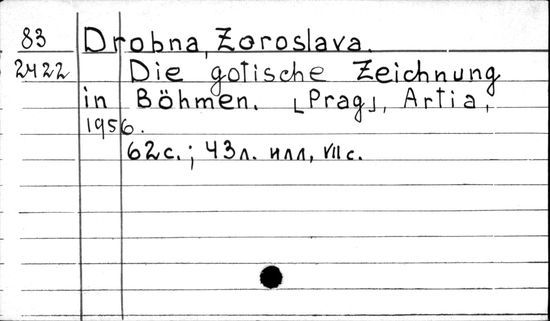 83 Drobna, Zoroslava.
2422 Die gotische Zeichnung
in Böhmen. [Prag], Artia,
1956.
62с.; 43л. илл, VII с.